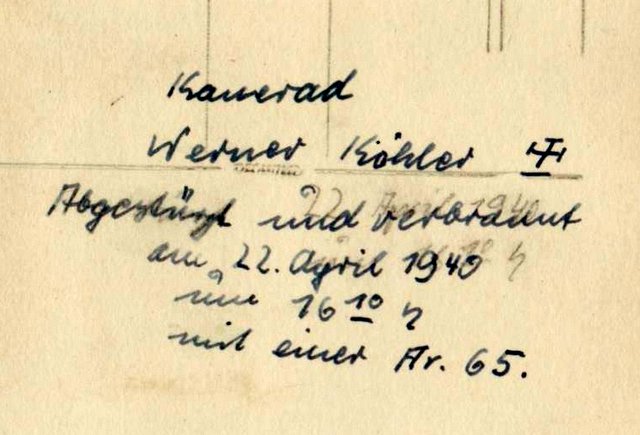 Kamerad
Werner Köhler ✠
Abgestürzt und verbrannt
am 22. April 1940
um 16 10 h
mit einer Ar. 65.